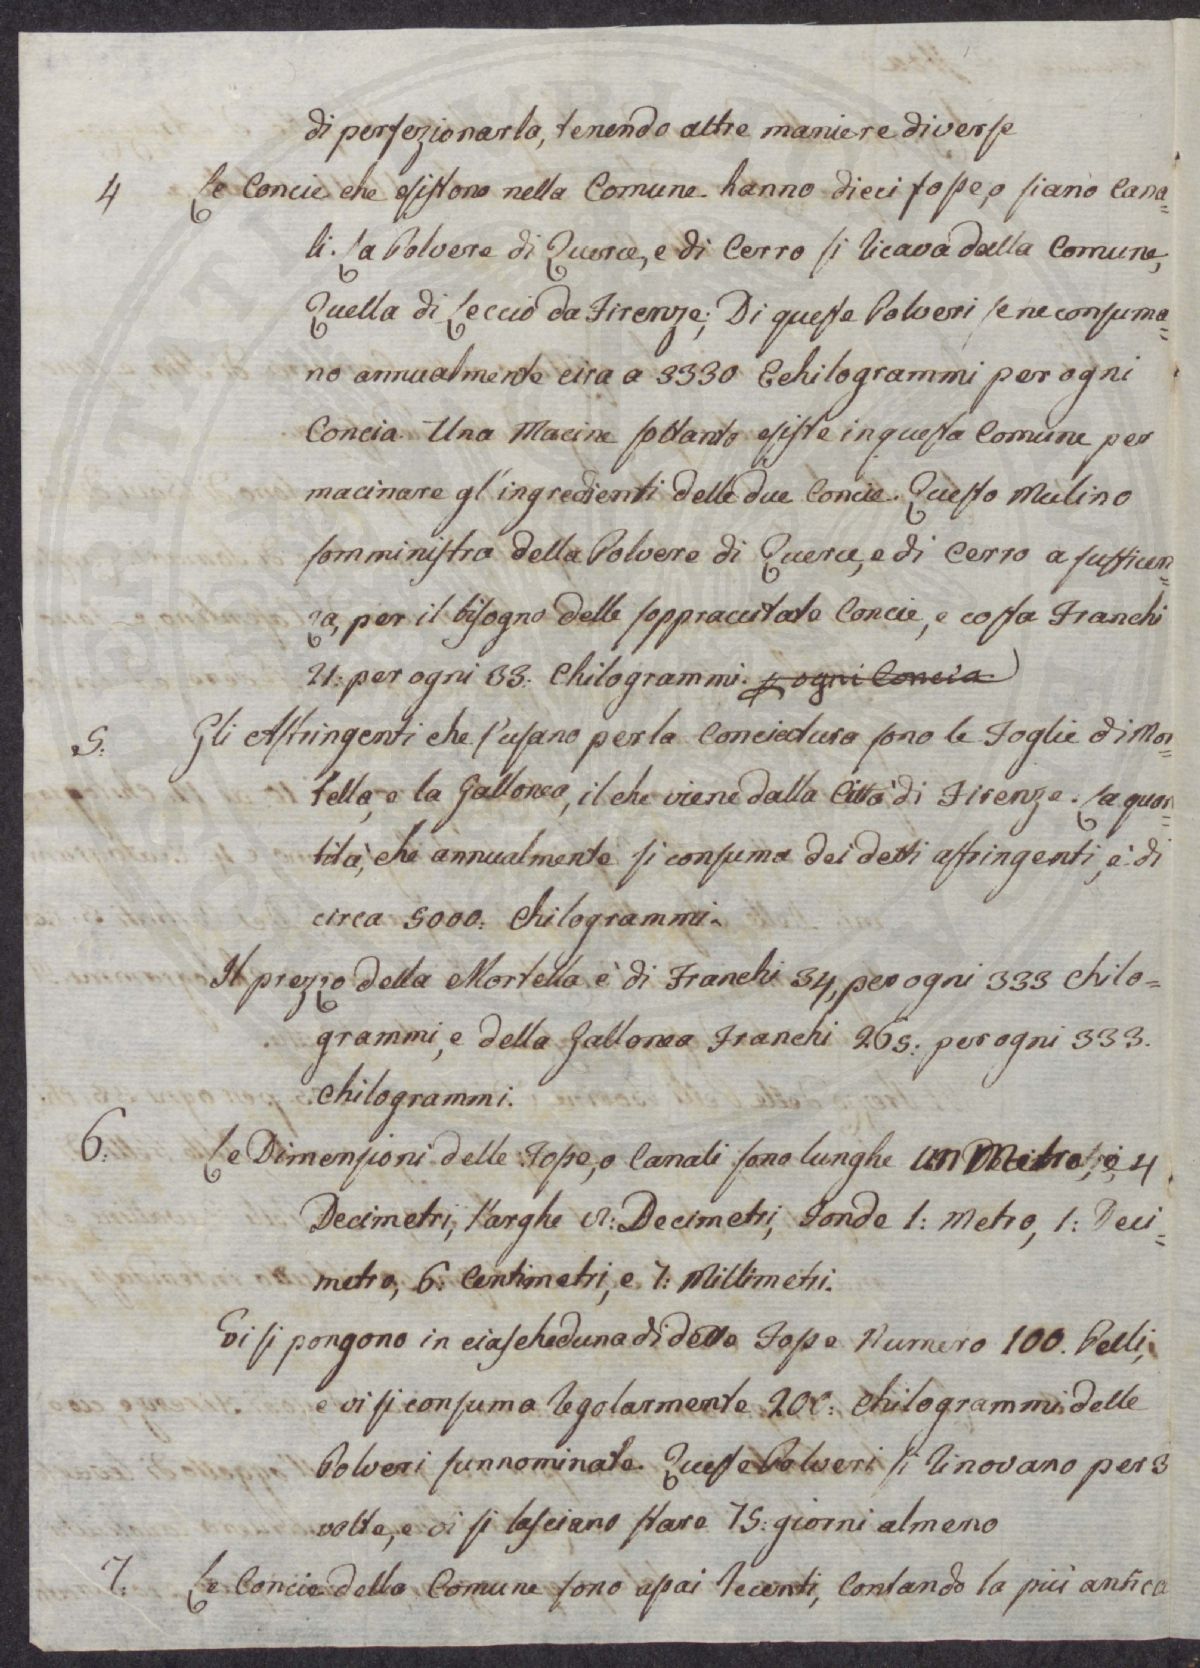 di perfezionarla, tenendo altre maniere diverse
4 Le Concie che esistono nella Comune hanno dieci fosse, o siano Cana=
li. La Polvere di Querce, e di Cerro si ricava dalla Comune,
Quella di Leccio da Firenze; Di queste Polveri se ne consuma=
no annualmente circa a 3330 Chilogrammi per ogni
Concia. Una Macine soltanto esiste in questa Comune per
macinare gl'ingredienti delle due Concie. Questo Mulino
somministra della Polvere di Querce, e di Cerro a sufficien=
za, per il bisogno delle soppracitate Concie, e costa Franchi
21: per ogni 33: Chilogrammi. p ogni Concia
5: Gli Astringenti che s'usano per la Conciatura sono le Foglie di Mor=
tella, e la Gallonea, il che viene dalla Città di Firenze. La quan=
tità, che annualmente si consuma dei detti astringenti, è di
circa 5000: Chilogrammi.
Il prezzo della Mortella è di Franchi 34, per ogni 333 Chilo=
grammi, e della Gallonea Franchi 265: per ogni 333.
Chilogrammi.
6: Le Dimensioni delle Fosse, o Canali sono lunghe un Metro, e 4
Decimetri, Larghe 8: Decimetri, Fonde 1: Metro, 1: Deci=
metro, 6: Centimetri, e 7: Millimetri.
Vi si pongono in ciascheduna di dette Fosse Numero 100. Pelli,
e vi si consuma regolarmente 200: Chilogrammi delle
Polveri sunnominate. Queste Polveri si rinovano per 3
volte, e vi si lasciano stare 75: giorni almeno
7: Le Concie della Comune sono assai recenti, Contando la più antica